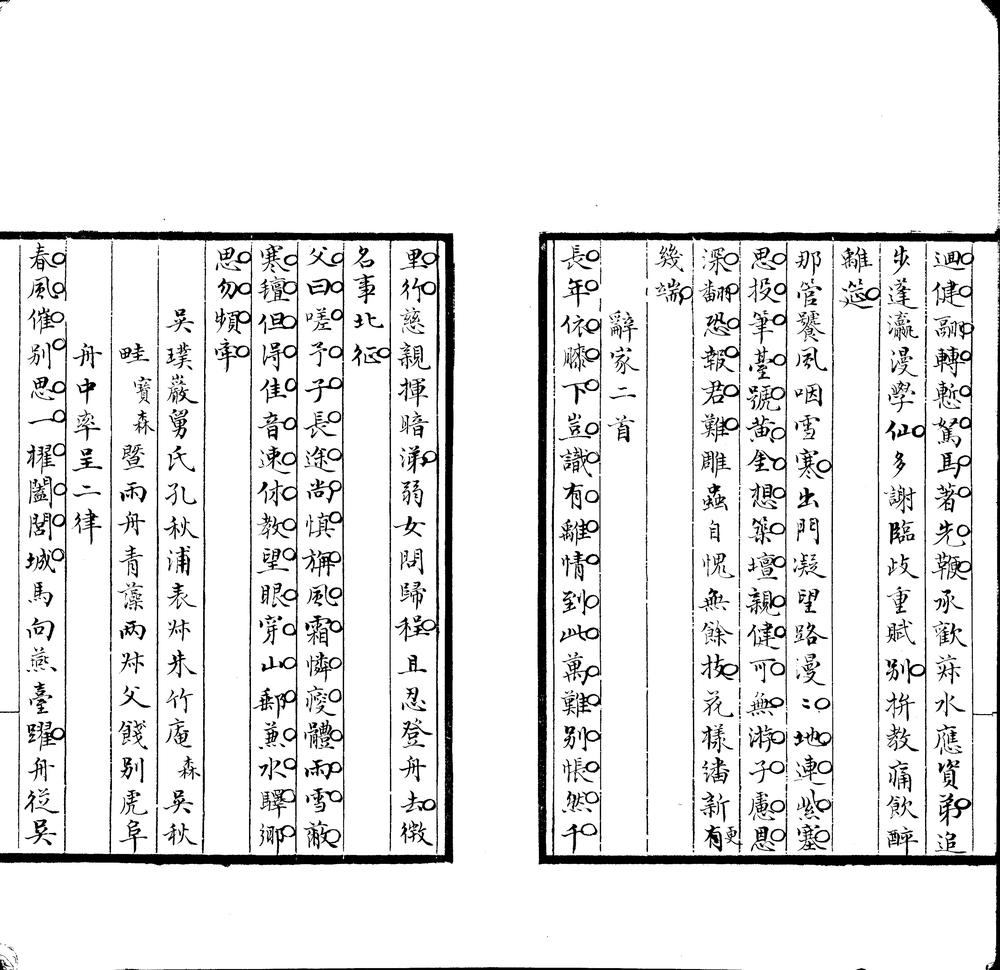 迴健翮轉慙駑馬著先鞭承歡菽水應資弟追
步蓬瀛漫學仙多謝臨歧重賦別拚教痛飲醉
離筵
那管饕風咽雪寒出門凝望路漫〻地連紫塞
思投筆臺號黄金想築壇親健可無游子慮恩
深翻恐報君難雕蟲自愧無餘技花樣繙新有更
幾端
辭家二首
長年依膝下豈識有離情到此萬難別悵然千
里行慈親揮暗涕弱女問歸程且忍登舟去微
名事北征
父曰嗟予子長途尚慎旃風霜憐瘦體雨雪蔽
寒氊但得佳音速休教望眼穿山郵兼水驛鄉
思勿頻牽
吳璞巖舅氏孔秋浦表𠦑朱竹庵森吳秋
畦寶森暨雨舟青藻兩𠦑父餞別虎阜
舟中率呈二律
春風催別思一櫂闔閭城馬向燕臺躍舟從吳